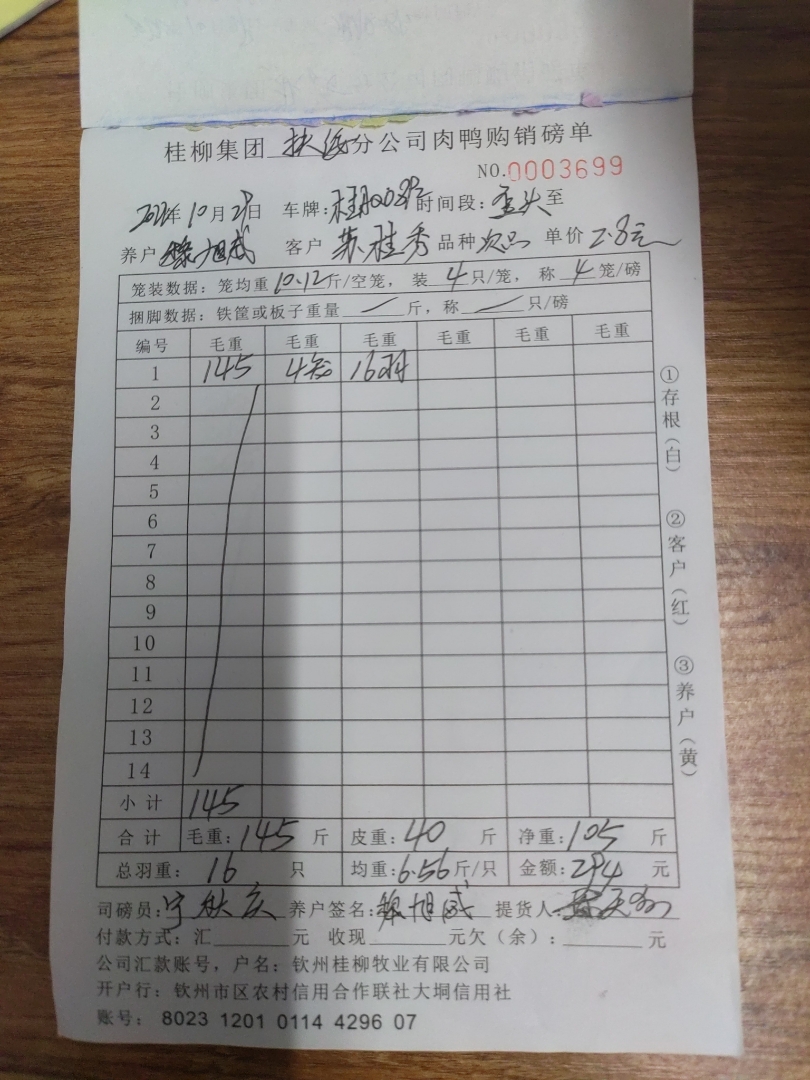 桂柳集团 分公司肉鸭购销磅单
NO.0003699
年10月 日 车牌: 时间段: 至
养户 旭威 客户 苏桂秀 品种 次品 单价 2.8元
笼装数据：笼均重 10.12 斤/空笼，装 4 只/笼，称 4 笼/磅
捆脚数据：铁筐或板子重量 斤，称 只/磅
编号 毛重 毛重 毛重 毛重 毛重 毛重
1 145 4笼 16羽
2
3
4
5
6
7
8
9
10
11
12
13
14
小计 145
合计 毛重：145 斤 皮重：40 斤 净重：105 斤
总羽重：16 只 均重：6.56 斤/只 金额：294 元
司磅员：宁秋庆 养户签名： 旭威 提货人：
付款方式：汇 元 收现 元欠（余）： 元
公司汇款账号，户名：钦州桂柳牧业有限公司
开户行：钦州市区农村信用合作联社大垌信用社
账号：8023 1201 0114 4296 07
①存根（白）
②客户（红）
③养户（黄）